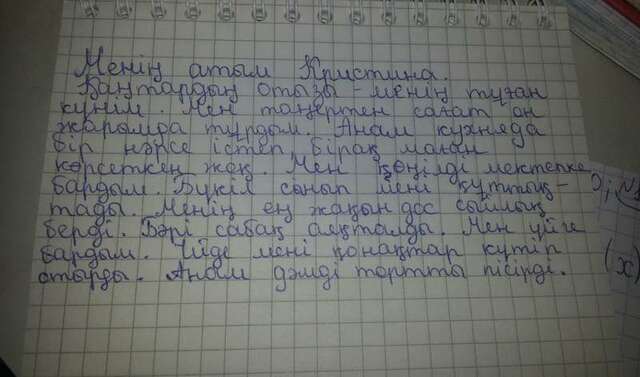 Менің атым Кристина.
Қаңтардың отызы - менің туған
күнім. Мен таңертен сағат он
жарымда тұрдым. Анам кухняда
бір нәрсе істеп бірақ маған
көрсеткен жоқ. Мен көңілді мектепке
бардым. Бүкіл сынып мені құттық-
тады. Менің ең жақын дос сыйлық
берді. Бәрі сабақ аяқталды. Мен үйге
бардым. Үйде мені қонақтар күтіп
отырды. Анам дәмді тортты пісірді.
(x)